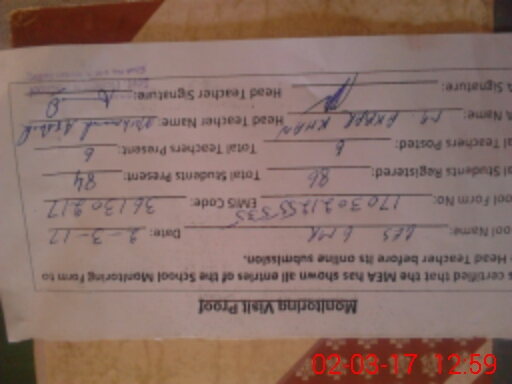 Monitoring Visit Proof
s certified that the MEA has shown all entries of the School Monitoring Form to
Head Teacher before its online submission.
ool Name: GES 6 MR Date: 2-3-17
ool Form No: EMIS Code: 36130217
al Students Registered: 86 Total Students Present: 84
al Teachers Posted: 6 Total Teachers Present: 6
A Name: KHAN Head Teacher Name:
A Signature: Head Teacher Signature:
02-03-17 12:59